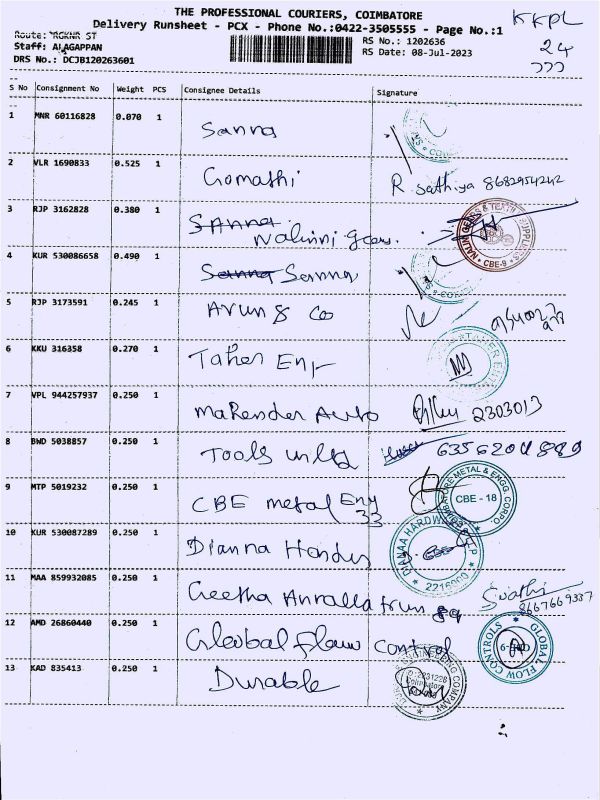 THE PROFESSIONAL COURIERS, COIMBATORE
Delivery Runsheet - PCX - Phone No.:0422-3505555 - Page No.:1
KKPL
24
Route: ST
RS No.: 1202636
Staff: ALAGAPPAN
RS Date: 08-Jul-2023
DRS No.: DCJB120263601
S No Consignment No Weight PCS Consignee Details Signature
1 MNR 60116828 0.070 1 Sanna
2 VLR 1690833 0.525 1 Gomathi R. Sathiya 8682954242
3 RJP 3162828 0.380 1 Sanna
Nalinni gears.
CBE-9
4 KUR 530086658 0.490 1 Sanna Sanna
5 RJP 3173591 0.245 1 Arun & Co
6 KKU 316358 0.270 1 Taher Ent
7 VPL 944257937 0.250 1 Mahender Auto 2303013
8 BWD 5038857 0.250 1 Tools unltd
9 MTP 5019232 0.250 1 CBE metal Eng
33
COIMBATORE METAL & ENGG. CORPO.
CBE - 18
10 KUR 530087289 0.250 1 Dianna Hardw
DIANAA HARDWARES
2216900
11 MAA 859932085 0.250 1 Geetha Swathi
8667669337
12 AMD 26860440 0.250 1 Gleobal flow control
GLOBAL FLOW CONTROLS
13 KAD 835413 0.250 1 Durable
ENGINEERING COMPANY
2231228